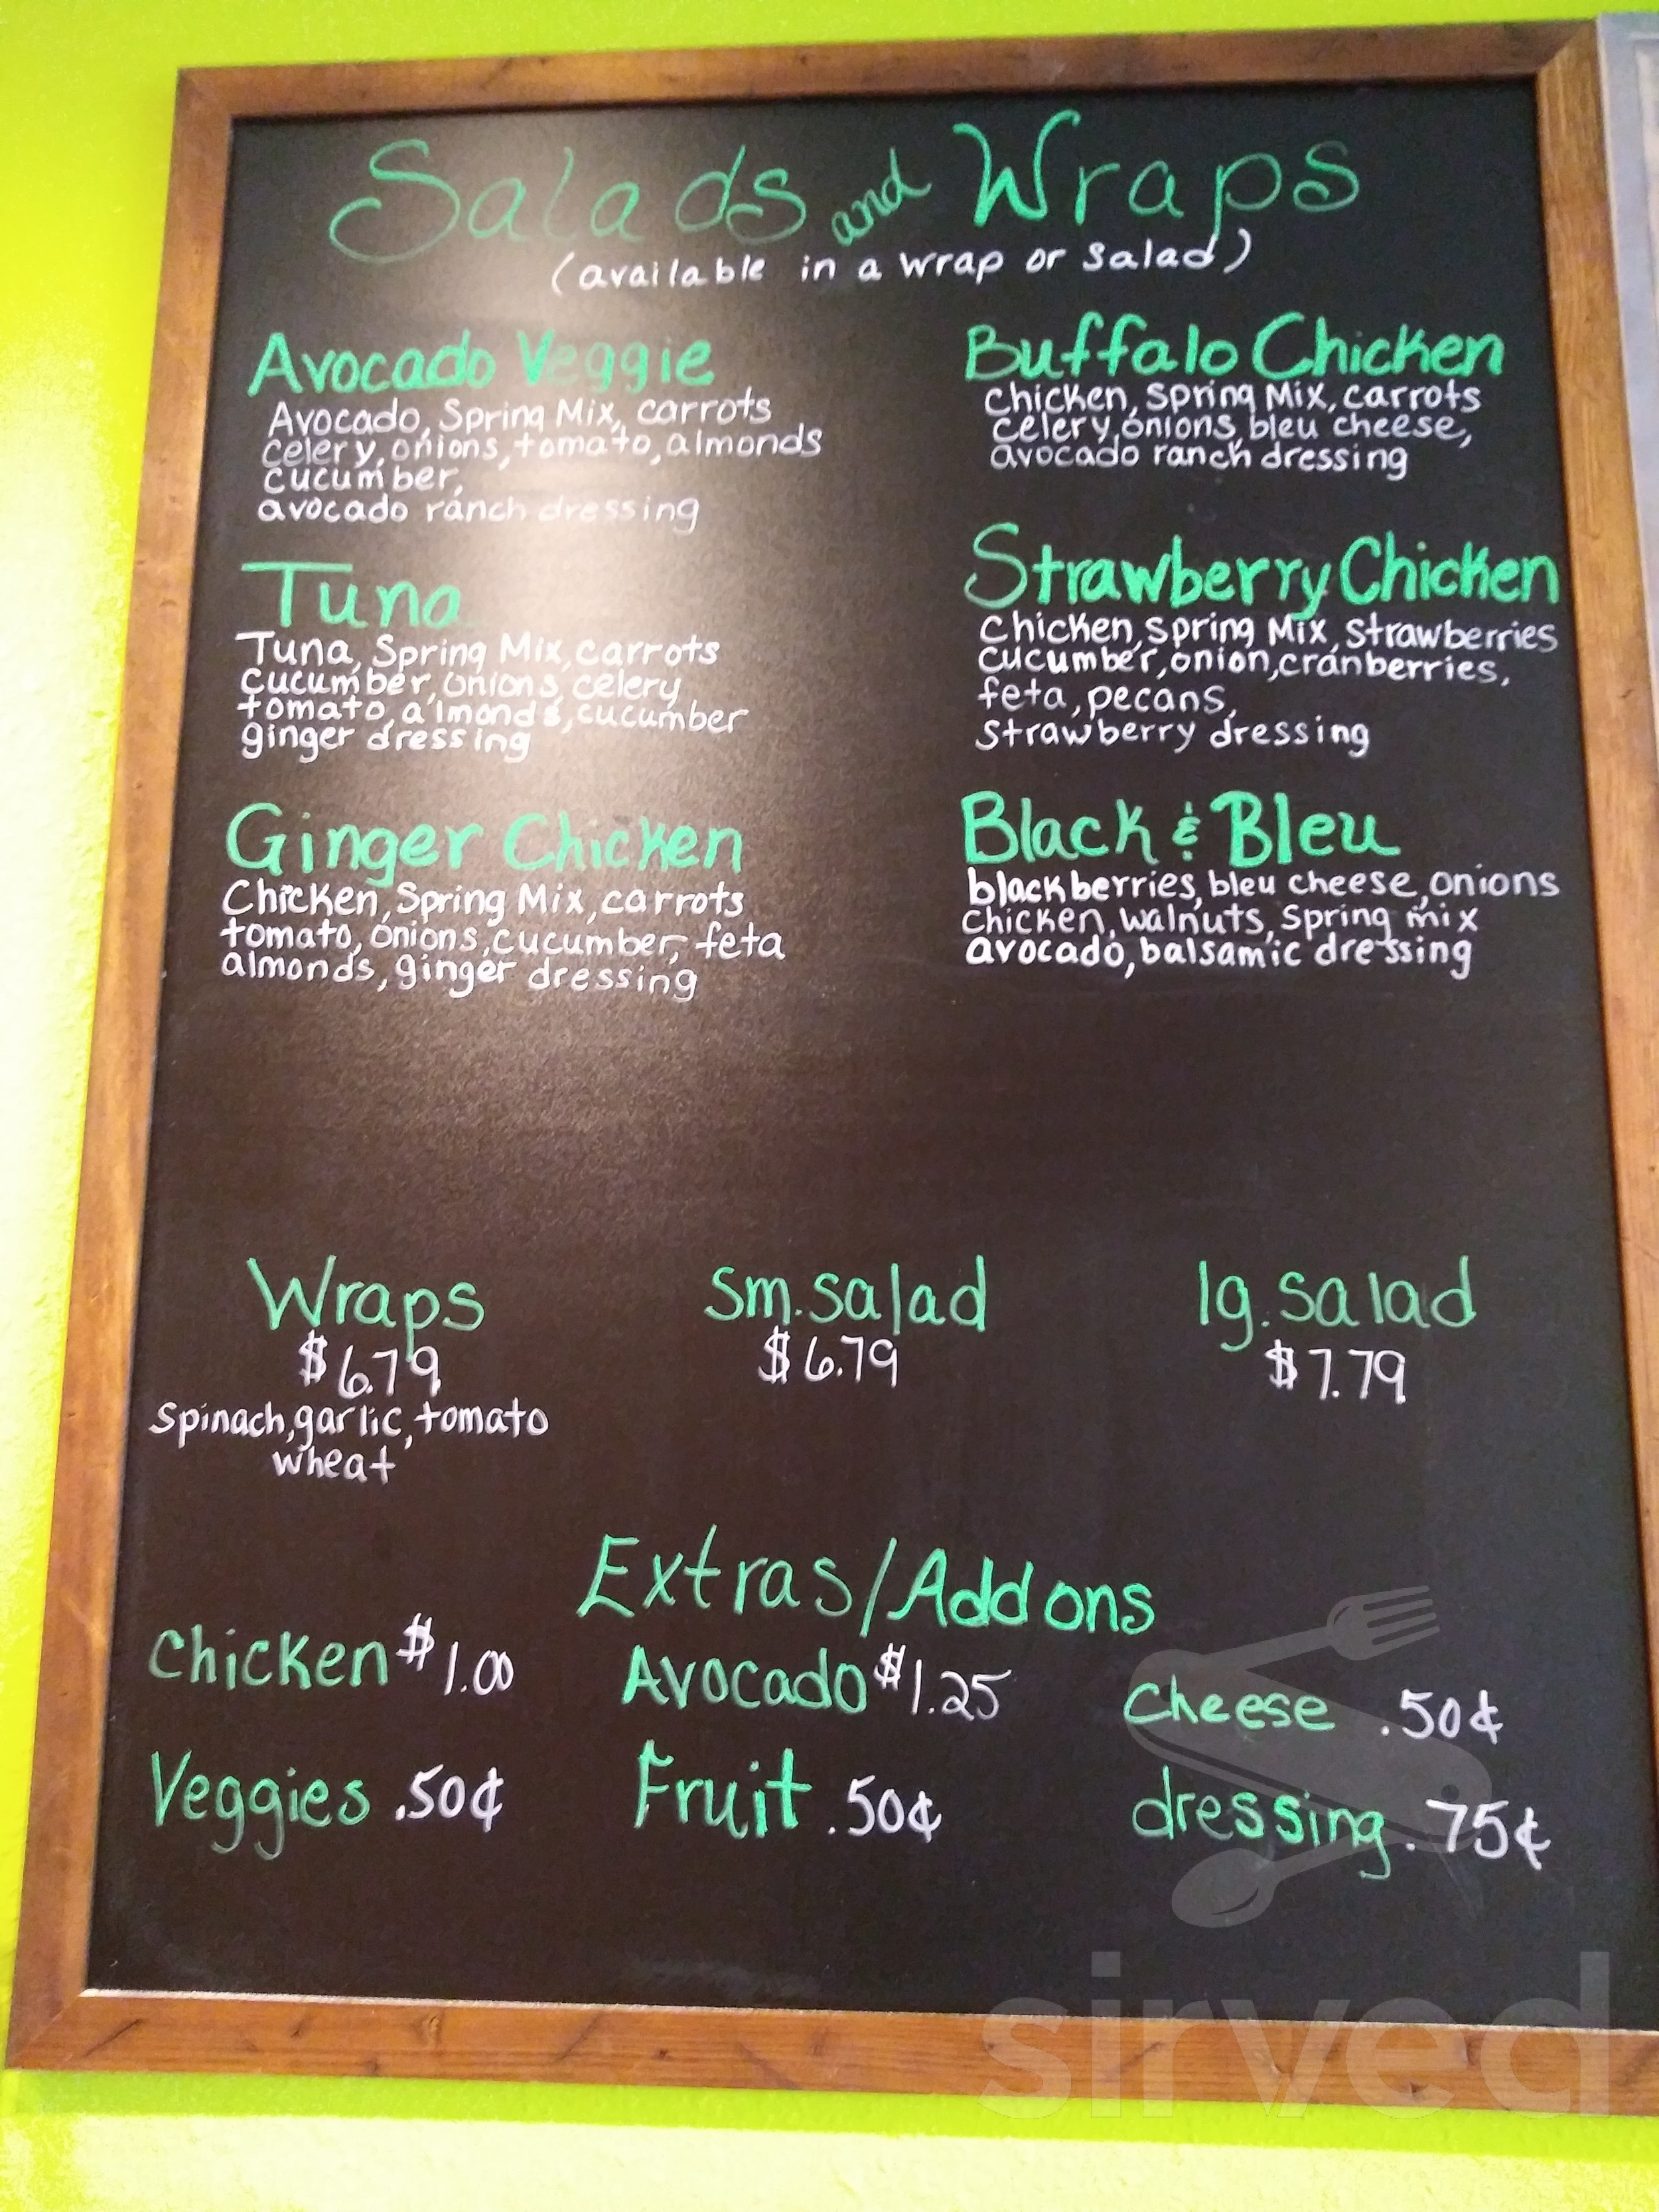 Salads and Wraps
(available in a wrap or salad)
Avocado Veggie
Avocado, Spring Mix, carrots
celery, onions, tomato, almonds
cucumber,
avocado ranch dressing
Tuna
Tuna, Spring Mix, carrots
cucumber, onions, celery
tomato, almonds, cucumber
ginger dressing
Ginger Chicken
Chicken, Spring Mix, carrots
tomato, onions, cucumber, feta
almonds, ginger dressing
Buffalo Chicken
Chicken, Spring Mix, carrots
celery, onions, bleu cheese,
avocado ranch dressing
Strawberry Chicken
Chicken, spring Mix, strawberries
cucumber, onion, cranberries,
feta, pecans,
strawberry dressing
Black & Bleu
blackberries, bleu cheese, onions
chicken, walnuts, spring mix
avocado, balsamic dressing
Wraps
$6.79
Spinach, garlic, tomato,
wheat
Sm. salad
$6.79
lg. salad
$7.79
Extras/Add ons
Chicken $1.00
Avocado $1.25
Cheese .50¢
Veggies .50¢
Fruit .50¢
dressing .75¢
sirved